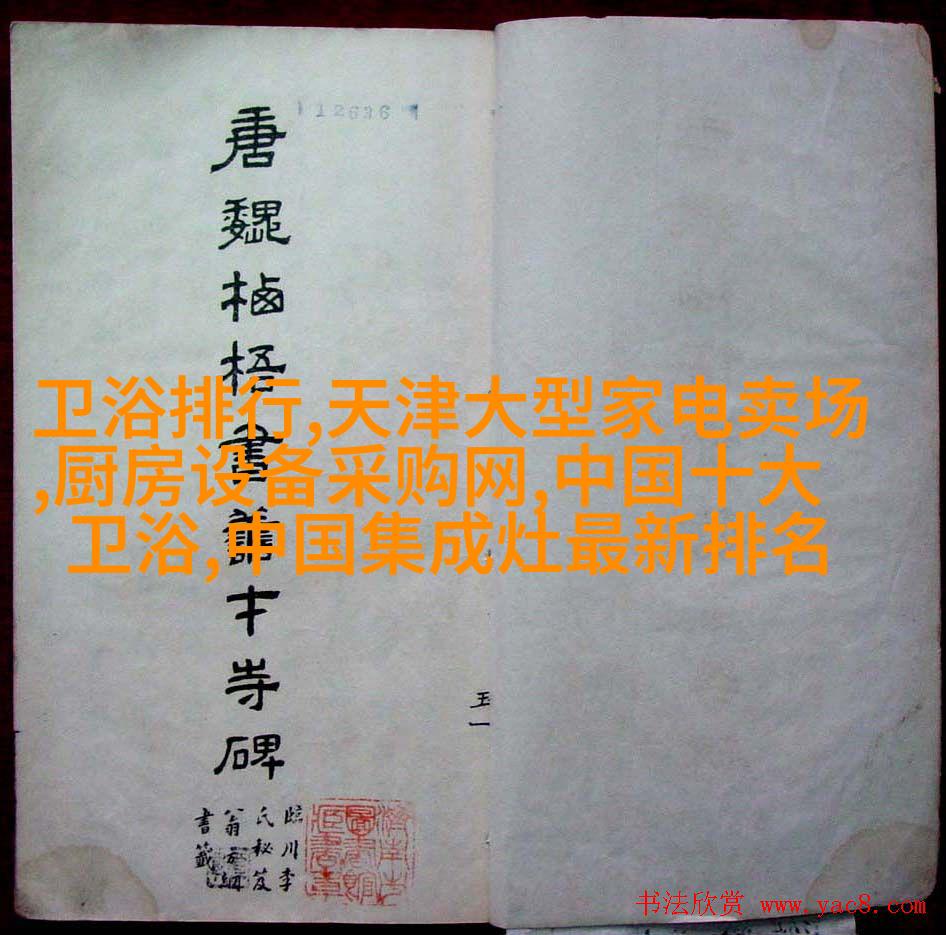 12636
唐魏栖梧書善才寺碑
卫浴排行,天津大型家电卖场
,厨房设备采购网,中国十大
卫浴,中国集成灶最新排名
臨川李
氏秘笈
翁方綱
書籤
濟南市
圖書館
藏書章
书法欣赏 www.yac8.com